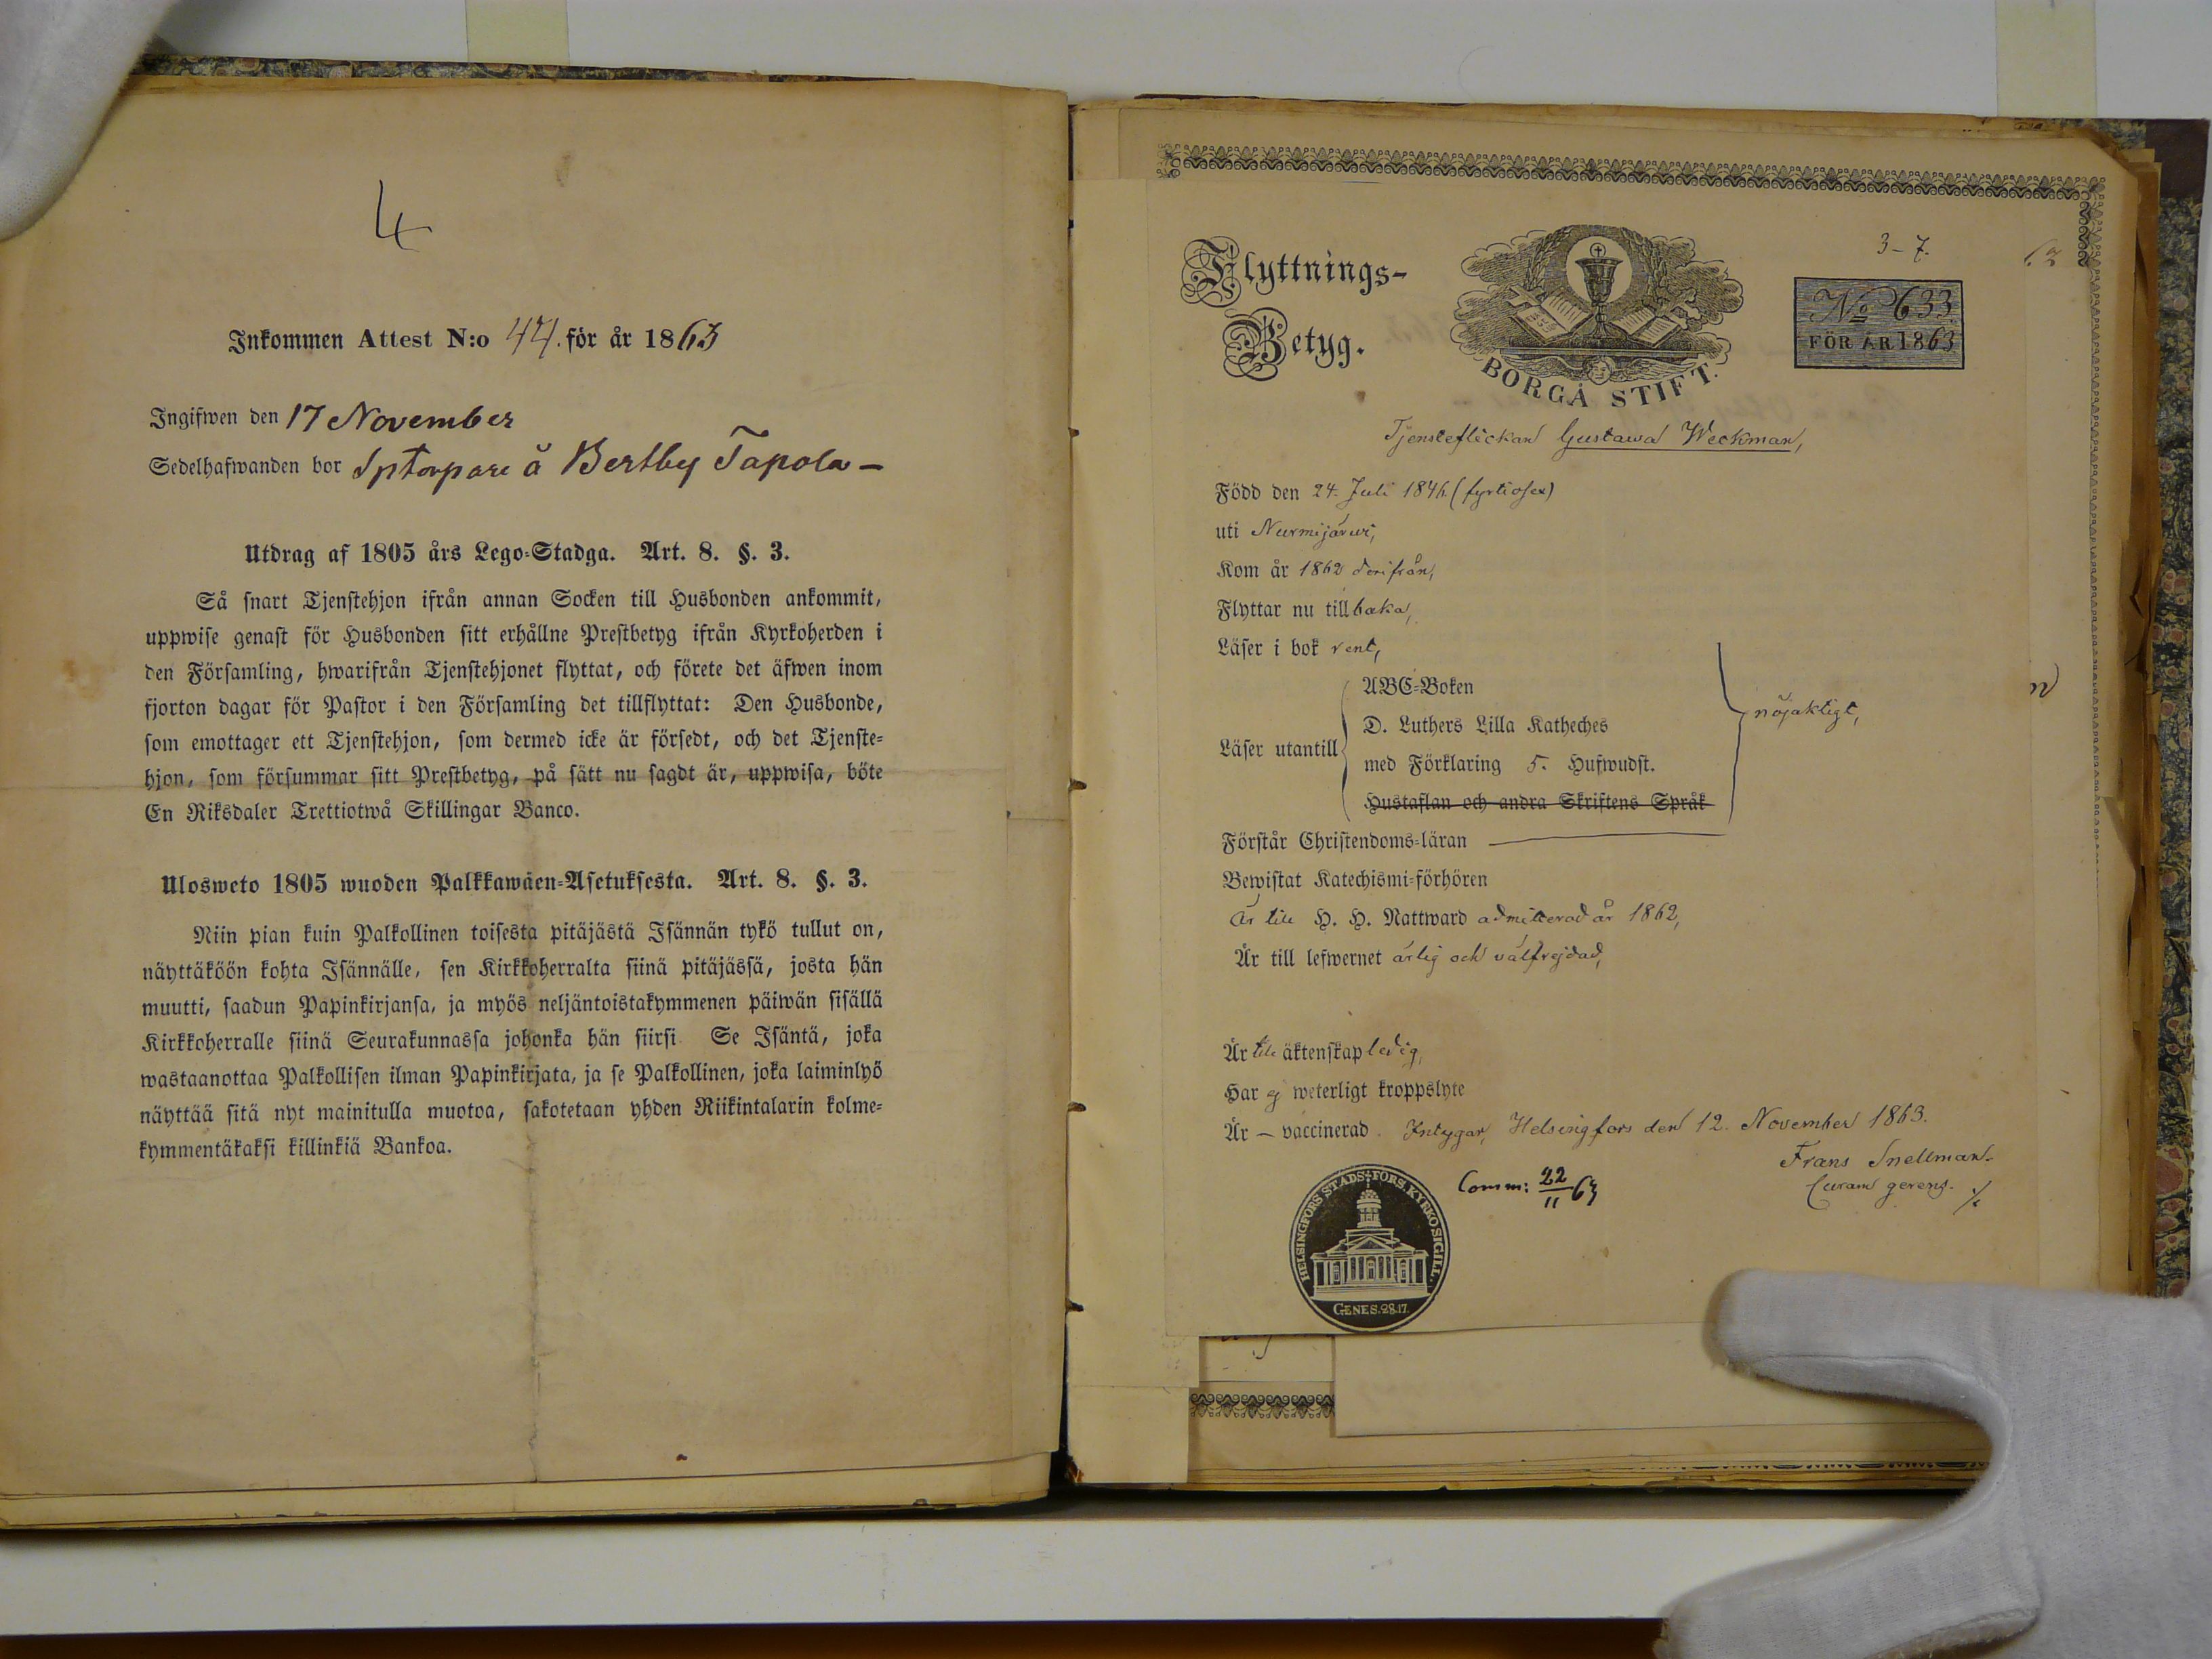 4
Inkommen Attest N:o 44. för år 1863
Ingifwen den 17 November
Sedelhafwanden bor Sptorpare å Bertby Tapola –
Utdrag af 1805 års Lego-Stadga. Art. 8. §. 3.
Så snart Tjenstehjon ifrån annan Socken till Husbonden ankommit,
uppwise genast för Husbonden sitt erhållne Prestbetyg ifrån Kyrkoherden i
den Församling, hwarifrån Tjenstehjonet flyttat, och förete det äfwen inom
fjorton dagar för Pastor i den Församling det tillflyttat: Den Husbonde,
som emottager ett Tjenstehjon, som dermed icke är försedt, och det Tjenste-
hjon, som försummar sitt Prestbetyg, på sätt nu sagdt är, uppwisa, böte
En Riksdaler Trettiotwå Skillingar Banco.
Ulosweto 1805 wuoden Palkkawäen-Asetuksesta. Art. 8. §. 3.
Niin pian kuin Palkollinen toisesta pitäjästä Isännän tykö tullut on,
näyttäköön kohta Isännälle, sen Kirkkoherralta siinä pitäjässä, josta hän
muutti, saadun Papinkirjansa, ja myös neljäntoistakymmenen päiwän sisällä
Kirkkoherralle siinä Seurakunnassa johonka hän siirsi. Se Isäntä, joka
wastaanottaa Palkollisen ilman Papinkirjata, ja se Palkollinen, joka laiminlyö
näyttää sitä nyt mainitulla muotoa, sakotetaan yhden Riikintalarin kolme-
kymmentäkaksi killinkiä Bankoa.
3-7.
Flyttnings-
Betyg.
BORGÅ STIFT.
No 633
FÖR ÅR 1863
Tjensteflickan Gustawa Weckman,
Född den 24. Juli 1846 (fyrtiosex)
uti Nurmijärwi,
Kom år 1862 derifrån,
Flyttar nu tillbaka,
Läser i bok rent,
Läser utantill
ABC-Boken
D. Luthers Lilla Katheches
med Förklaring 5. Hufwudst.
Hustaflan och andra Skriftens Språk
nöjaktigt,
Förstår Christendoms-läran
Bewistat Katechismi-förhören
Är till H. H. Nattward admitterad år 1862,
Är till lefwernet ärlig och välfrejdad,
Är till äktenskap ledig,
Har ej weterligt kroppslyte
Är – vaccinerad. Intygar, Helsingfors den 12. November 1863.
Frans Snellman.
Curam gerens.
Comm: 22/11 63
HELSINGFORS STADS FÖRS. KYRKO SIGILL.
GENES. 28.17.